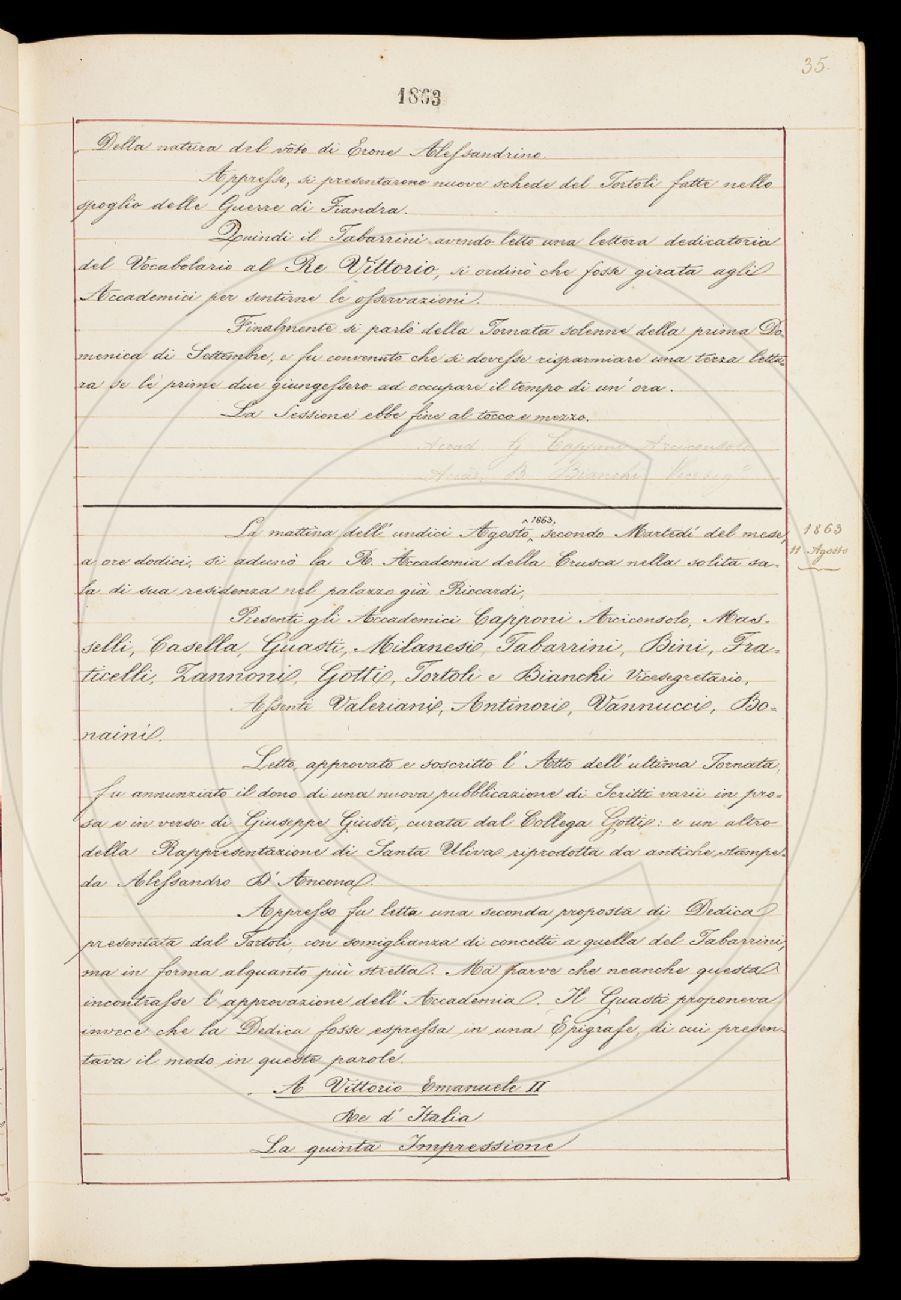 35.
1863
Della natura del vôto di Erone Alessandrino.
Appresso, si presentarono nuove schede del Tortoli fatte nello
spoglio delle Guerre di Fiandra.
Quindi il Tabarrini avendo letto una lettera dedicatoria
del Vocabolario al Re Vittorio, si ordinò che fosse girata agli
Accademici per sentirne le osservazioni.
Finalmente si parlò della Tornata solenne della prima Do-
menica di Settembre, e fu convenuto che si dovesse risparmiare una terza lettu-
ra se le prime due giungessero ad occupare il tempo di un' ora.
La Sessione ebbe fine al tocco e mezzo.
Accad. G. Capponi Arciconsolo
Accad. B. Bianchi Viceseg.º
La mattina dell' undici Agosto ^1863, secondo Martedì del mese,
1863
11 Agosto
a ore dodici, si adunò la R. Accademia della Crusca nella solita sa-
la di sua residenza nel palazzo già Riccardi,
Presenti gli Accademici Capponi Arciconsolo, Mas-
selli, Casella, Guasti, Milanesi, Tabarrini, Bini, Fra-
ticelli, Zannoni, Gotti, Tortoli e Bianchi Vicesegretario,
Assenti Valeriani, Antinori, Vannucci, Bo-
naini.
Letto, approvato e soscritto l' Atto dell' ultima Tornata,
fu annunziato il dono di una nuova pubblicazione di Scritti varii in pro-
sa e in verso di Giuseppe Giusti, curata dal Collega Gotti: e un altro
della Rappresentazione di Santa Uliva riprodotta da antiche stampe
da Alessandro D' Ancona.
Appresso fu letta una seconda proposta di Dedica
presentata dal Tortoli, con somiglianza di concetti a quella del Tabarrini,
ma in forma alquanto più stretta. Ma parve che neanche questa
incontrasse l' approvazione dell' Accademia. Il Guasti proponeva
invece che la Dedica fosse espressa in una Epigrafe, di cui presen-
tava il modo in queste parole.
A Vittorio Emanuele II
Re d' Italia
La quinta Impressione